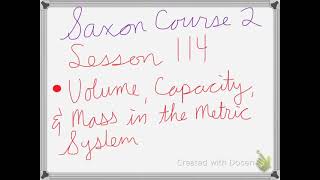 Saxon Course 2
Lesson 114
• Volume, Capacity,
& Mass in the Metric
System
Created with Doceri